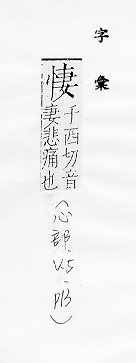 字彙
悽
千西切音
妻悲痛也
(心部.V5.P13)